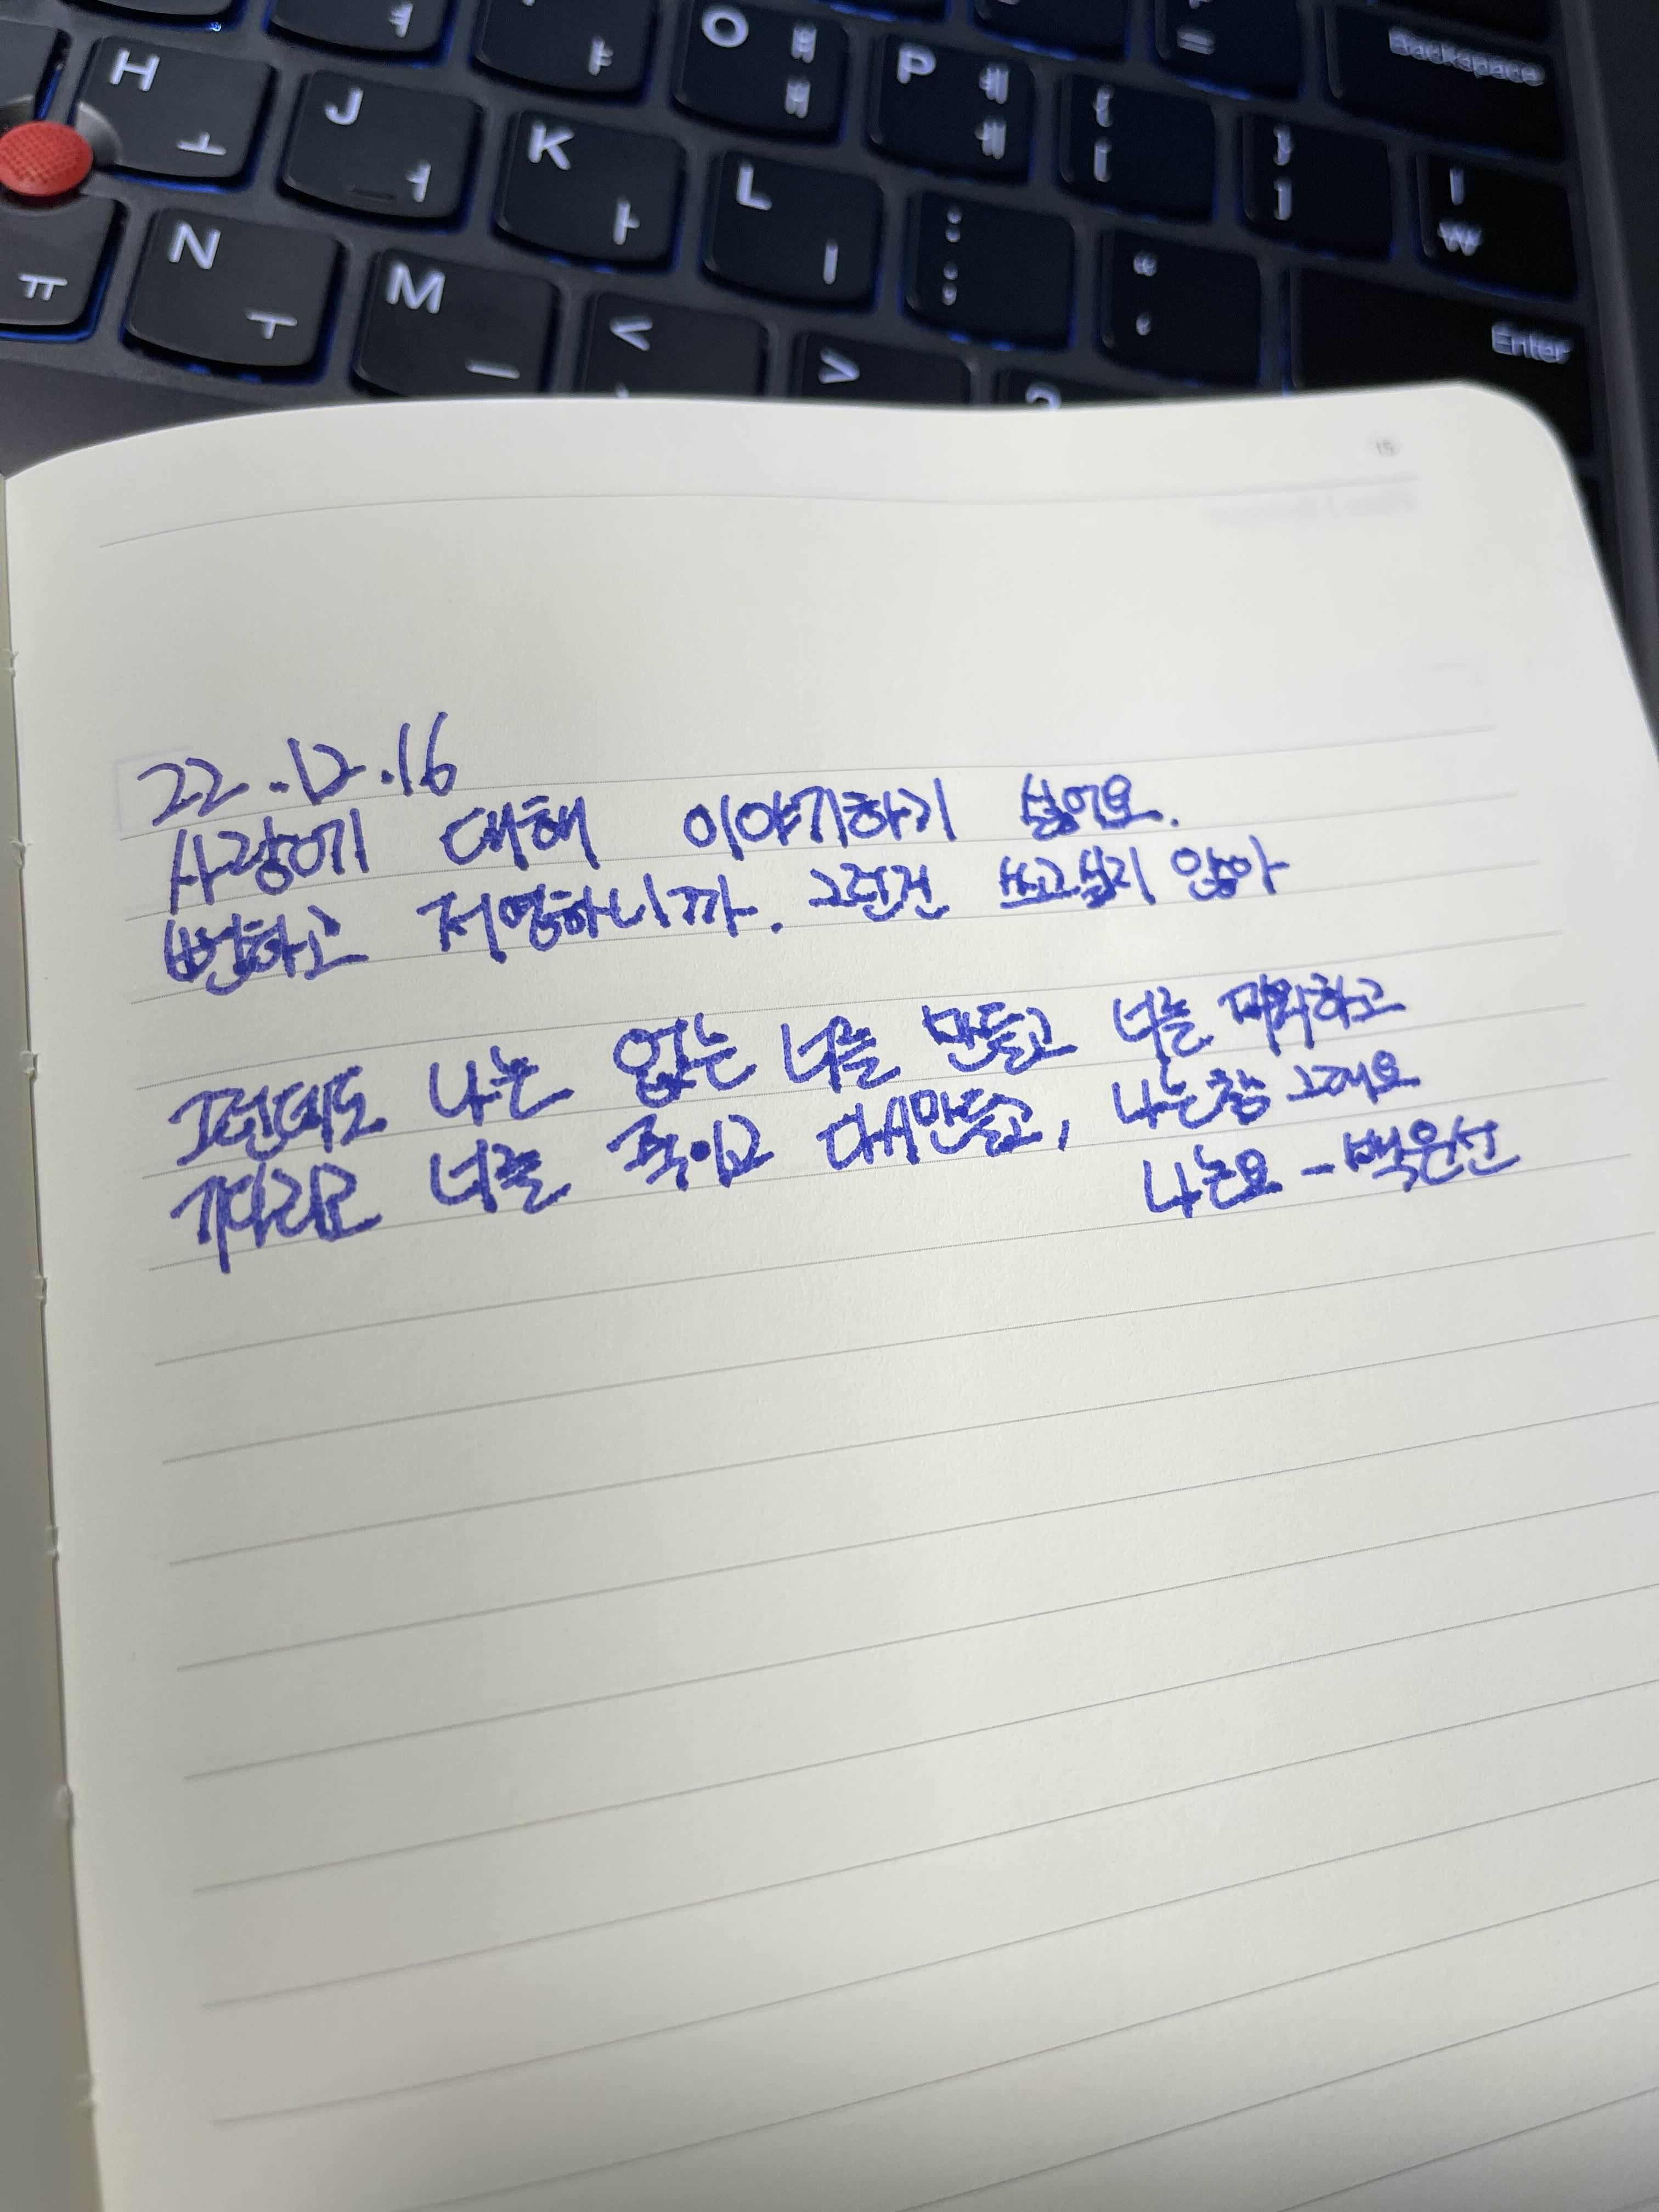 ㅕ ㅑ O ㅒ ㅐ P ㅖ ㅔ { [ } ] | ₩ = Backspace
H ㅗ J ㅓ K ㅏ L ㅣ : ; " ' Enter
ㅠ N ㅜ M ㅡ < >
15
22.12.16
사랑에 대해 이야기하기 싫어요.
뻔하고 저명하니까. 그런건 쓰고싶지 않아
그런데도 나는 없는 너를 만들고 너를 미워하고
기다리고 너를 죽이고 다시만들고, 나는 참 그래요
나는요 - 백은선